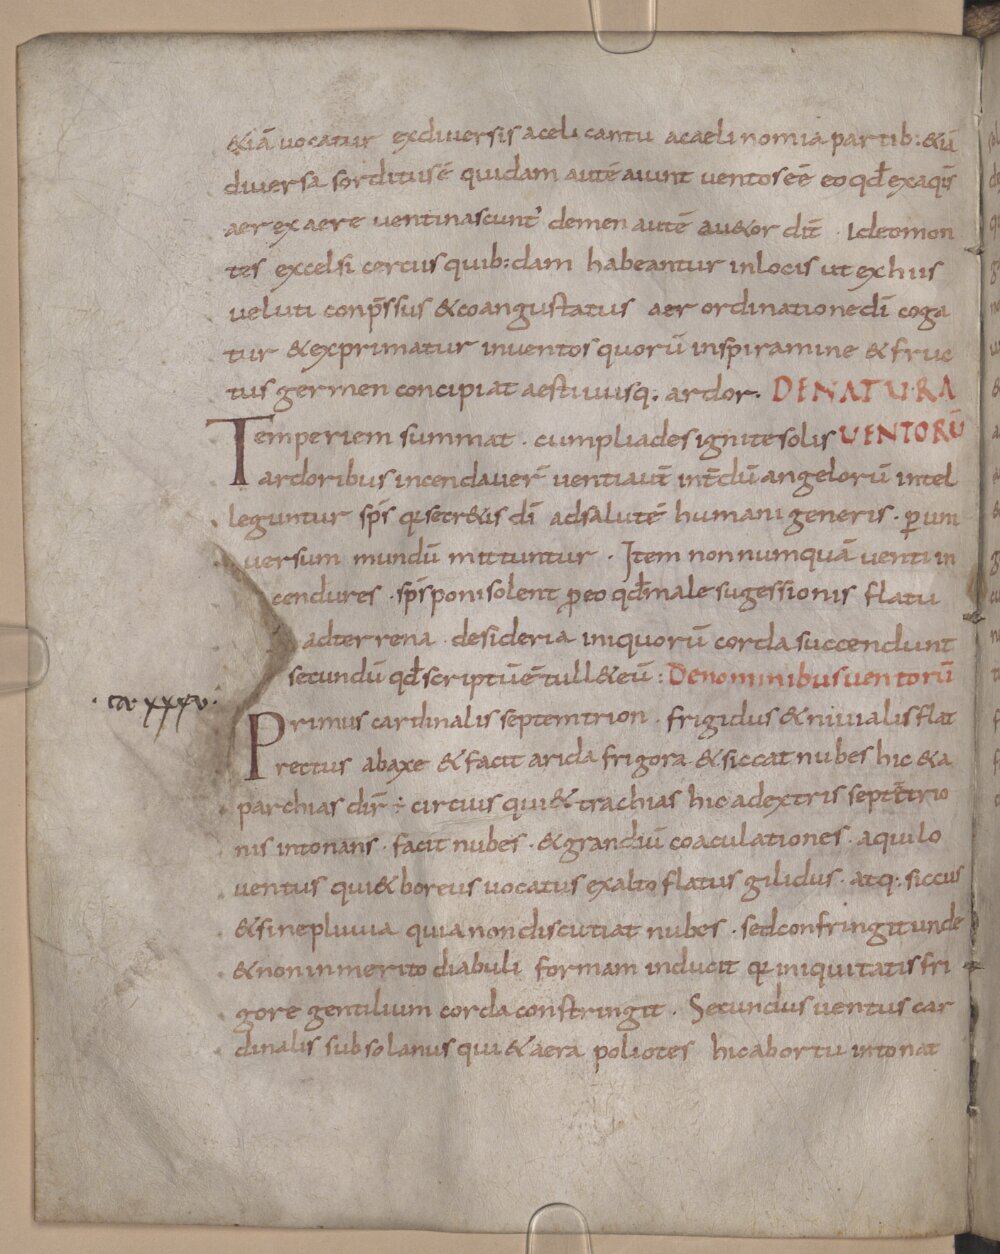 &iā uocatur exdiuersis aceli cantu acaeli nomia partib: &ū
diuersa sortitus ē quidam autē aiunt uentos eē eo qđ exaq̄s
aer ex aere uenti nascunt' clemen autē au&or dic̄ . Ideo mon
tes excelsi certus quib:dam habeantur in locis ut exhiis
ueluti conp̄ssus & coangustatus aer ordinatione dī coga
tur & exprimatur in uentos quorū inspiramine & fruc
tus germen concipiat aestiuusq; ardor. DE NATURA
Temperiem summat . cum pliades ignite solis UENTORŪ
ardoribus incendauer̄ uenti aut̄ int̄dū angelorū intel
leguntur sp̄s qui secr&is dī ad salutē humani generis . per uni
uersum mundū mittuntur . Item non numquā uenti in
cendures . sp̄s poni solent p eo qđ male sugessionis flatu
ad terrena desideria iniquorū corda succendunt
secundū qđ scriptū ē tull& eū : De nominibus uentorū
· ca xxxv ·
Primus cardinalis septemtrion . frigidus & niuialis flat
rectus ab axe & facit arida frigora & siccat nubes hic & a
parchias dir̄ ÷ circius qui & trachias hic adextris septētrio
nis intonans . facit nubes . & grandiū coaculationes . aquilo
uentus qui & boreus uocatus ex alto flatus gilidus . atq: siccus
& sine pluuia quia non discutiat nubes . sed confringit unde
& non inmerito diabuli formam inducit qui iniquitatis fri
gore gentilium corda constringit . Secundus uentus car
dinalis subsolanus qui & aera poliotes hic abortu intonat